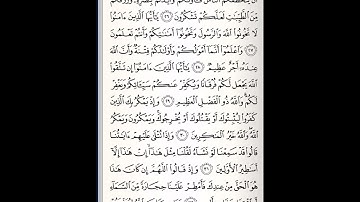 مِّنَ ٱلطَّيِّبَٰتِ لَعَلَّكُمْ تَشْكُرُونَ ٢٦ يَٰٓأَيُّهَا ٱلَّذِينَ ءَامَنُوا۟
لَا تَخُونُوا۟ ٱللَّهَ وَٱلرَّسُولَ وَتَخُونُوٓا۟ أَمَٰنَٰتِكُمْ وَأَنتُمْ تَعْلَمُونَ
٢٧ وَٱعْلَمُوٓا۟ أَنَّمَآ أَمْوَٰلُكُمْ وَأَوْلَٰدُكُمْ فِتْنَةٌ وَأَنَّ ٱللَّهَ
عِندَهُۥٓ أَجْرٌ عَظِيمٌ ٢٨ يَٰٓأَيُّهَا ٱلَّذِينَ ءَامَنُوٓا۟ إِن تَتَّقُوا۟
ٱللَّهَ يَجْعَل لَّكُمْ فُرْقَانًا وَيُكَفِّرْ عَنكُمْ سَيِّـَٔاتِكُمْ وَيَغْفِرْ
لَكُمْ وَٱللَّهُ ذُو ٱلْفَضْلِ ٱلْعَظِيمِ ٢٩ وَإِذْ يَمْكُرُ بِكَ ٱلَّذِينَ
كَفَرُوا۟ لِيُثْبِتُوكَ أَوْ يَقْتُلُوكَ أَوْ يُخْرِجُوكَ وَيَمْكُرُونَ وَيَمْكُرُ
ٱللَّهُ وَٱللَّهُ خَيْرُ ٱلْمَٰكِرِينَ ٣٠ وَإِذَا تُتْلَىٰ عَلَيْهِمْ ءَايَٰتُنَا
قَالُوا۟ قَدْ سَمِعْنَا لَوْ نَشَآءُ لَقُلْنَا مِثْلَ هَٰذَآ إِنْ هَٰذَآ إِلَّآ
أَسَٰطِيرُ ٱلْأَوَّلِينَ ٣١ وَإِذْ قَالُوا۟ ٱللَّهُمَّ إِن كَانَ هَٰذَا
هُوَ ٱلْحَقَّ مِنْ عِندِكَ فَأَمْطِرْ عَلَيْنَا حِجَارَةً مِّنَ ٱلسَّمَآءِ